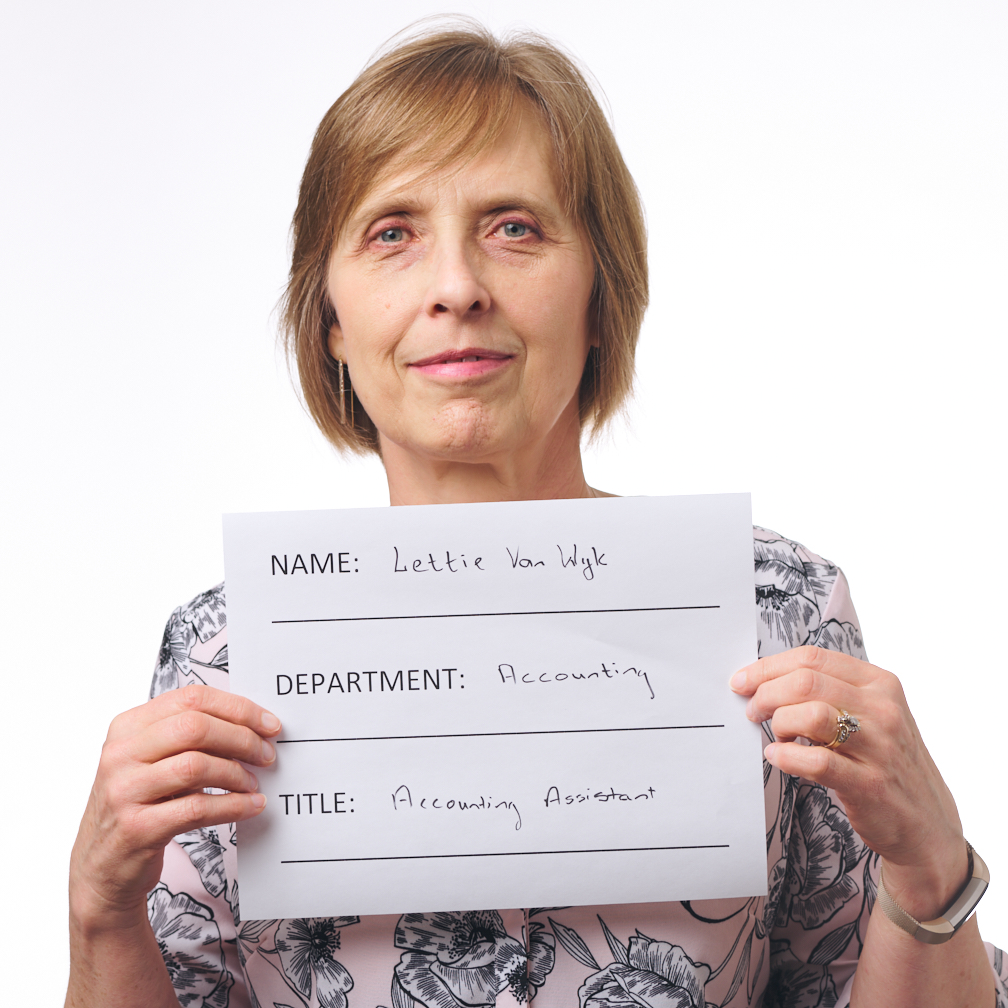 NAME: Lettie Van Wyk
DEPARTMENT: Accounting
TITLE: Accounting Assistant